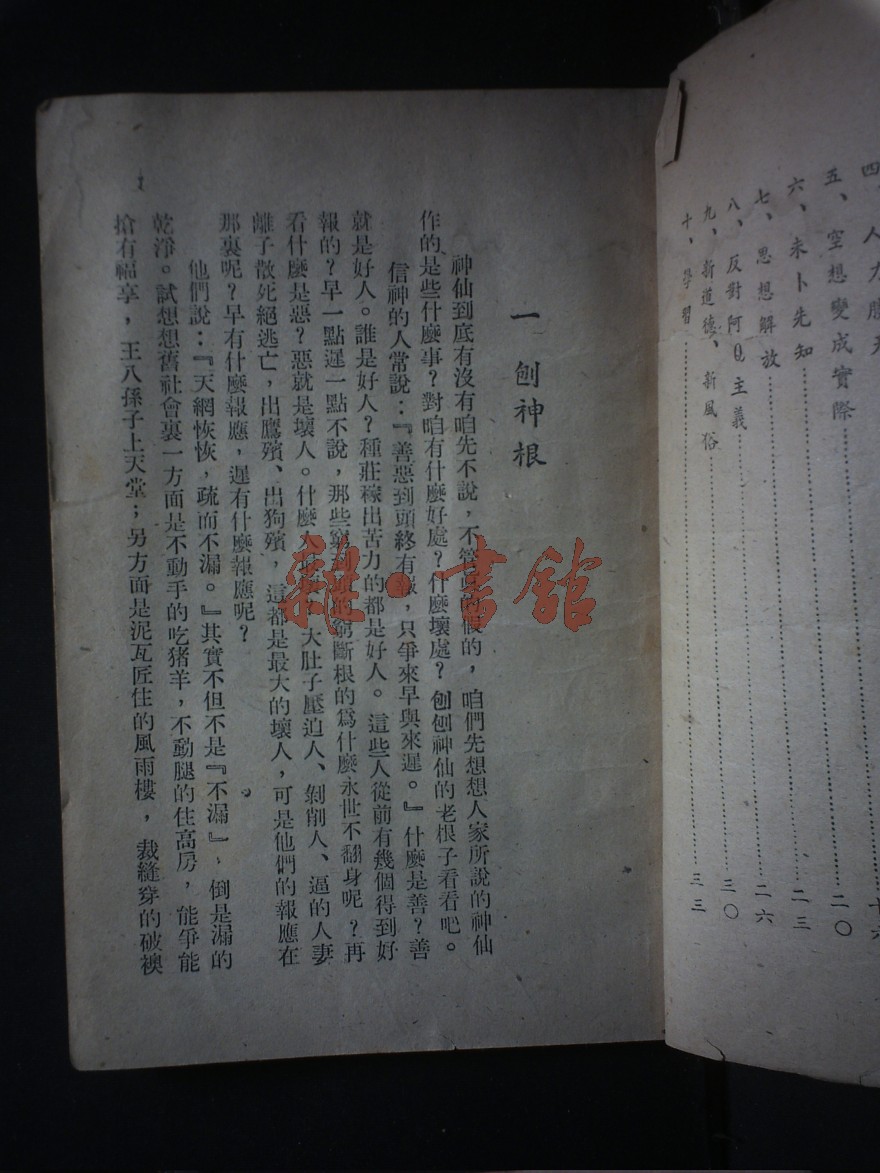 四、人力勝
五、空想變成實際………十六
六、未卜先知………二〇
七、思想解放………二三
八、反對阿Q主義………二六
九、新道德、新風俗………三〇
十、學習………三三
一 刨神根
神仙到底有沒有咱先不說，不管真的假的，咱們先想想人家所說的神仙
作的是些什麼事？對咱有什麼好處？什麼壞處？刨刨神仙的老根子看看吧。
信神的人常說：『善惡到頭終有報，只爭來早與來遲。』什麼是善？善
就是好人。誰是好人？種莊稼出苦力的都是好人。這些人從前有幾個得到好
報的？早一點遲一點不說，那些窮到頭的窮斷根的爲什麼永世不翻身呢？再
看什麼是惡？惡就是壞人。什麼人 大肚子壓迫人、剝削人、逼的人妻
離子散死絕逃亡，出鷹殯、出狗殯，這都是最大的壞人，可是他們的報應在
那裏呢？早有什麼報應，遲有什麼報應呢？
他們說：『天網恢恢，疏而不漏。』其實不但不是『不漏』、倒是漏的
乾淨。試想想舊社會裏一方面是不動手的吃猪羊，不動腿的住高房，能爭能
搶有福享，王八孫子上天堂；另方面是泥瓦匠住的風雨樓，裁縫穿的破襖
1
雜·書館